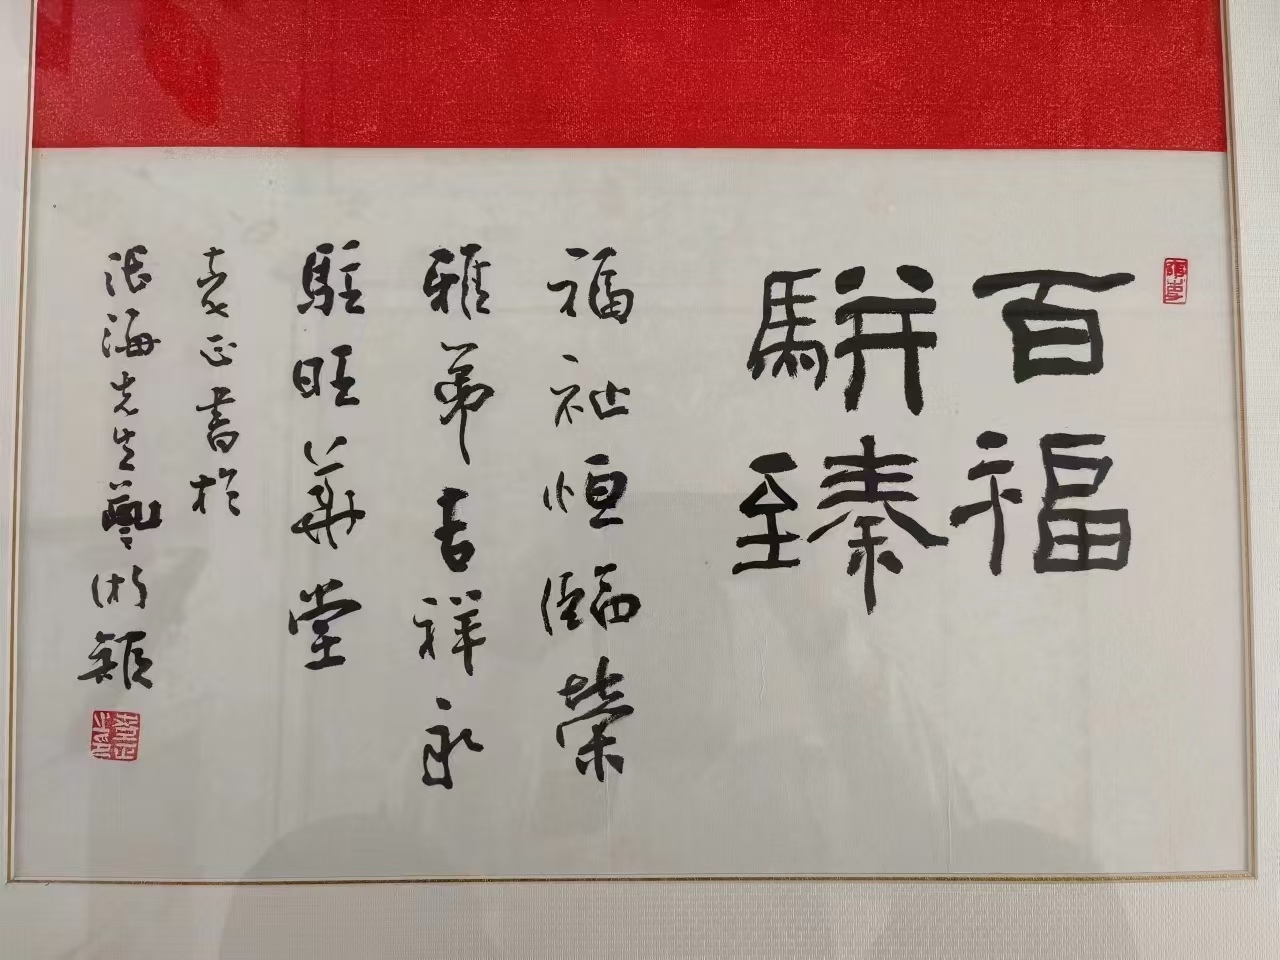 百福
駢臻
福祉恒臨榮
雅第吉祥永
駐旺華堂
正書於
張海先生藝術